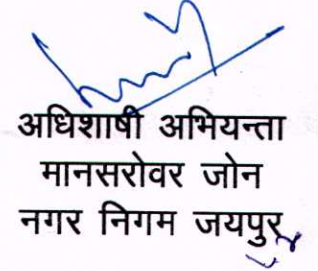 अधिशाषी अभियन्ता
मानसरोवर जोन
नगर निगम जयपुर